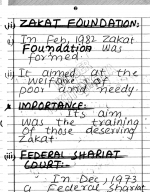 (ii) ZAKAT FOUNDATION:
(i) In Feb, 1982 Zakat
Foundation was
formed.
(ii) It aimed at the
welfare of
poor and needy.
* IMPORTANCE:
Its aim
was the training
of those deserving
Zakat.
(iii) FEDERAL SHARIAT
COURT:
In Dec, 1973
a Federal shariat